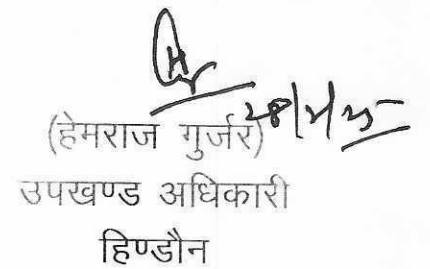 (हेमराज गुर्जर)
उपखण्ड अधिकारी
हिण्डौन